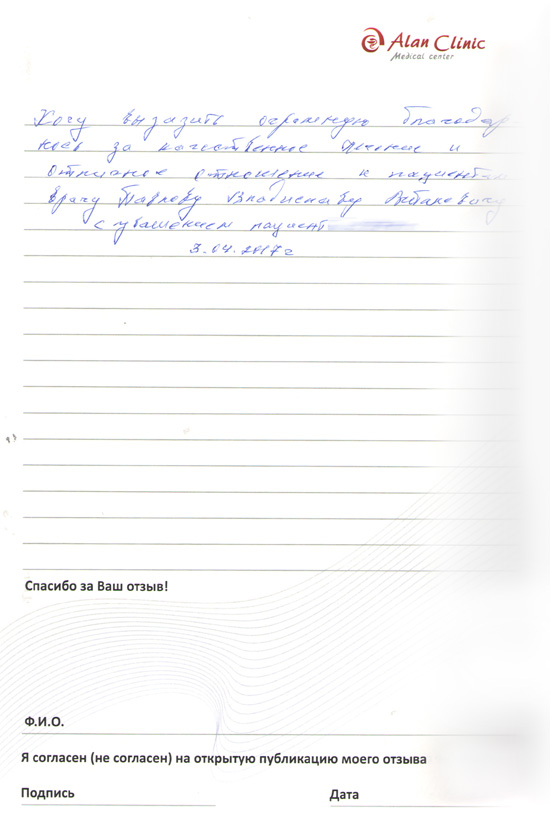 Alan Clinic
Medical center
Хочу выразить огромную благодар
ность за качественное лечение и
отличное отношение к пациентам
врачу Павлову Владиславу
с уважением пациент
3.04.2017г
Спасибо за Ваш отзыв!
Ф.И.О.
Я согласен (не согласен) на открытую публикацию моего отзыва
Подпись Дата